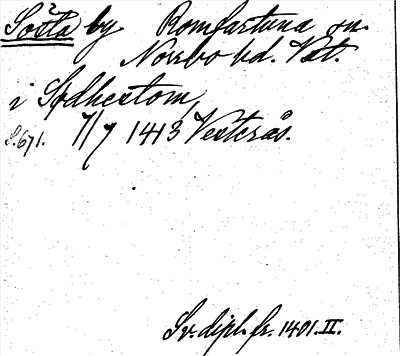 Sötla by Romfartuna sn.
Norrbo hd. Vstl.
i Sødhestom,
S. 671. 7/7 1413 Vesterås.
Sv. dipl. fr. 1401. II.